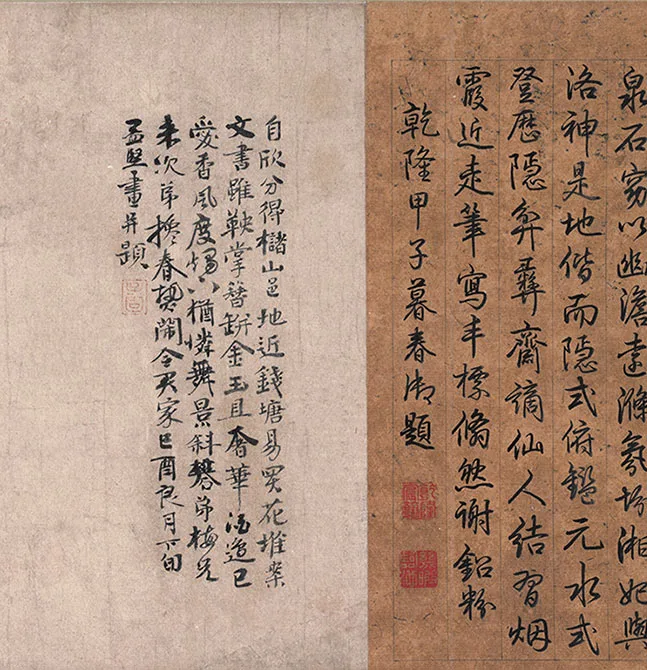 泉石窈以幽澹遠滌氛坋湘妃與
洛神是地偕而隱式俯鑑元水式
登歷隱弅彝齋謫仙人結習烟
霞近走筆寫丰標翛然謝鉛粉
乾隆甲子暮春御題
自欣分得櫧山邑地近錢塘易買花堆案
文書雖鞅掌簪缾金玉且奢華酒邊已
愛香風度燭下猶憐舞景斜礬弟梅兄
來次第攙春熱鬧令君家己酉良月下旬
孟堅畫并題